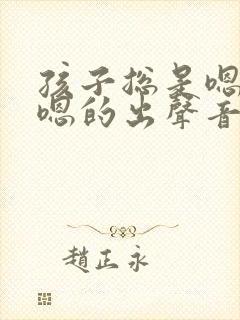 孩子总是嗯
嗯的出聲音
趙正永